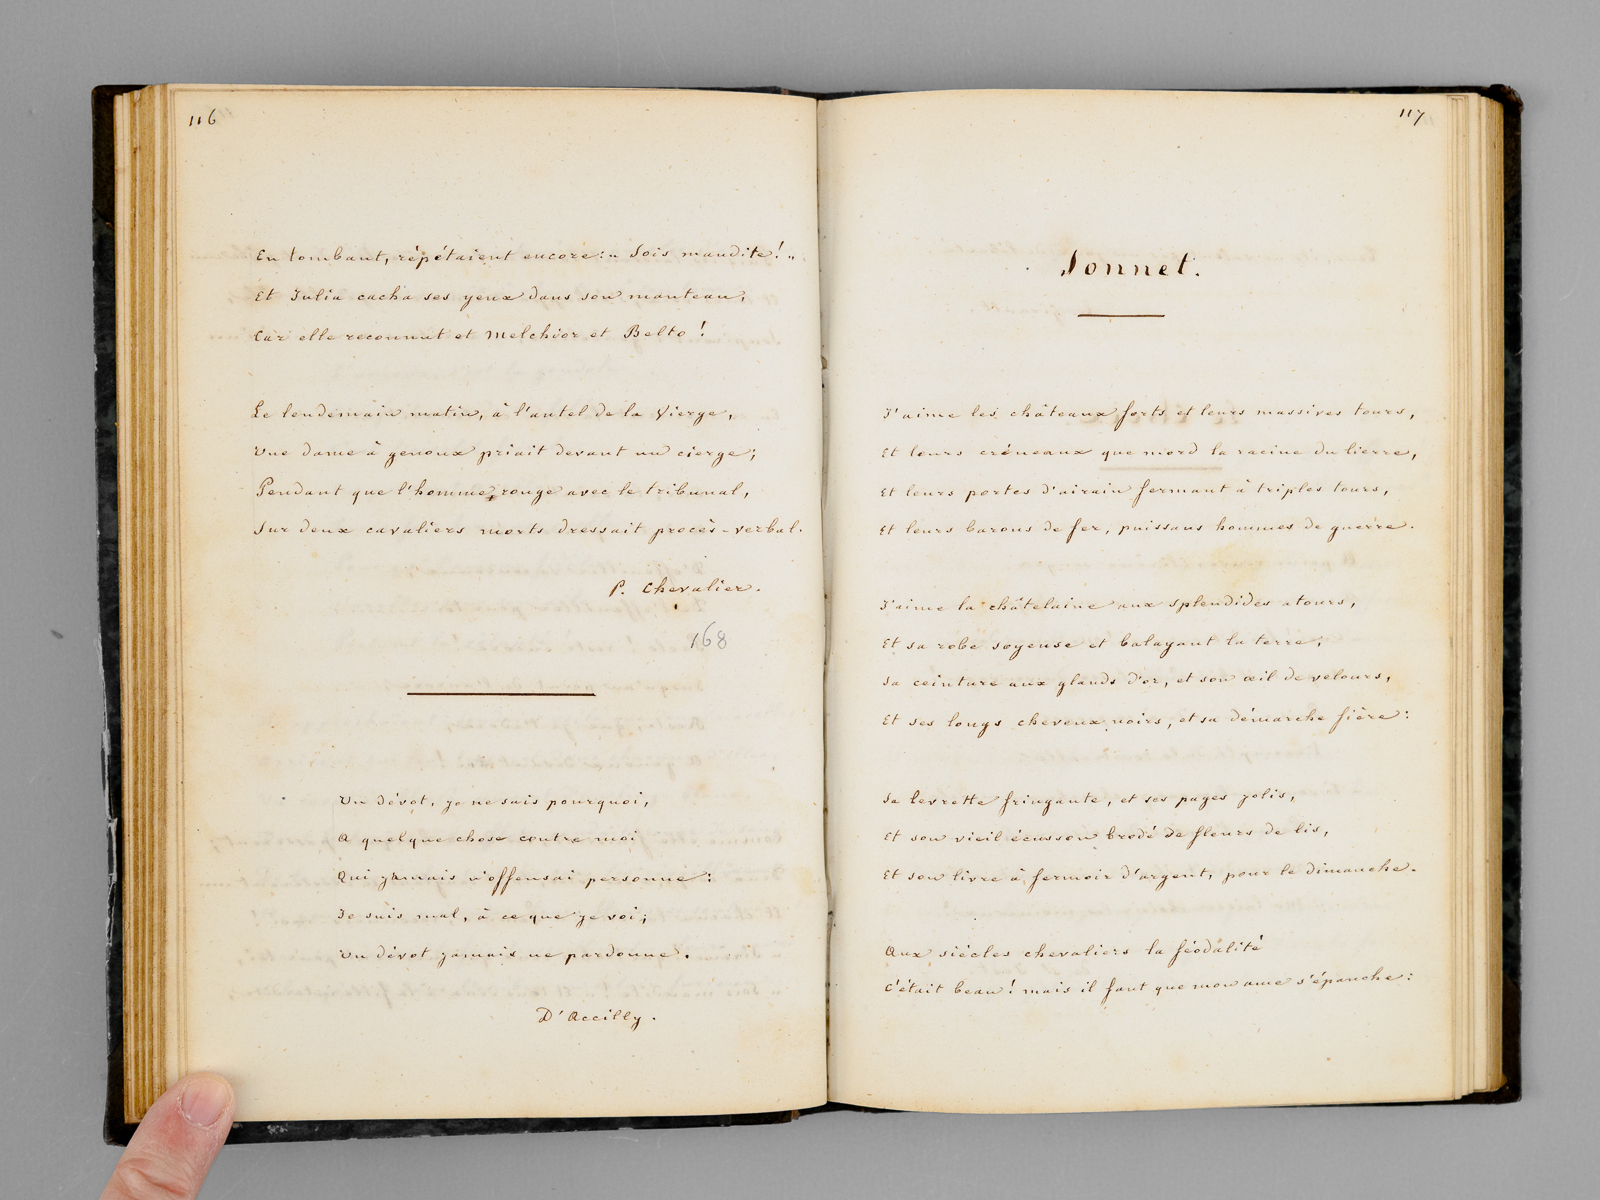 116
En tombant, répétaient encore : « Sois maudite ! »
Et Julia cacha ses yeux dans son manteau,
Car elle reconnut et Melchior et Belto !
Le lendemain matin, à l'autel de la Vierge,
Une dame à genoux priait devant un cierge ;
Pendant que l'homme rouge avec le tribunal,
Sur deux cavaliers morts dressait procès-verbal.
P. Chevalier.
168
Un dévot, je ne sais pourquoi,
A quelque chose contre moi
Qui jamais n'offensai personne :
Je suis mal, à ce que je voi ;
Un dévot jamais ne pardonne.
D'Accilly.
117
Sonnet.
J'aime les châteaux forts et leurs massives tours,
Et leurs créneaux que mord la racine du lierre,
Et leurs portes d'airain fermant à triples tours,
Et leurs barons de fer, puissans hommes de guerre.
J'aime la châtelaine aux splendides atours,
Et sa robe soyeuse et balayant la terre,
Sa ceinture aux glands d'or, et son œil de velours,
Et ses longs cheveux noirs, et sa démarche fière :
Sa levrette fringante, et ses pages jolis,
Et son vieil écusson brodé de fleurs de lis,
Et son livre à fermoir d'argent, pour le dimanche.
Aux siècles chevaliers la féodalité
C'était beau ! mais il faut que mon ame s'épanche :